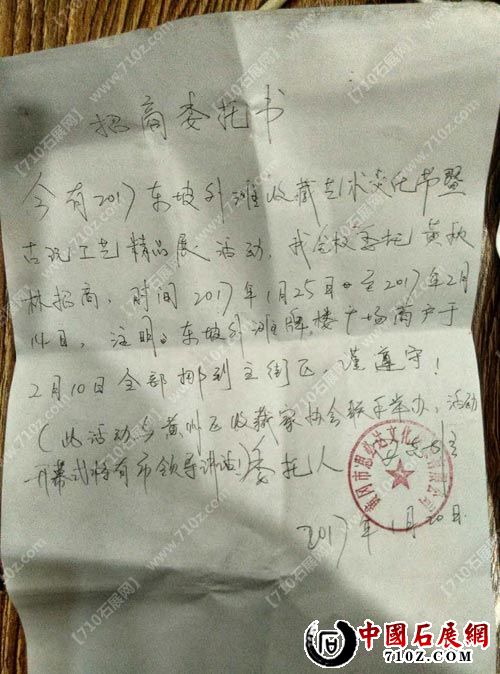 招商委托书
今有2017东坡外滩收藏艺术文化节暨
古玩工艺精品展活动，我全权委托黄秋
林招商，时间2017年1月25日至2017年2月
14日，注明：东坡外滩牌楼广场商户于
2月10日全部挪到主街区，谨遵守！
(此活动与黄州区收藏家协会联手举办，活动
开幕式将有市领导讲话)委托人
黄冈市思 文化 有限公司
2017年1月20日
中國石展網
710z.COM
【710石展网】
www.710z.com